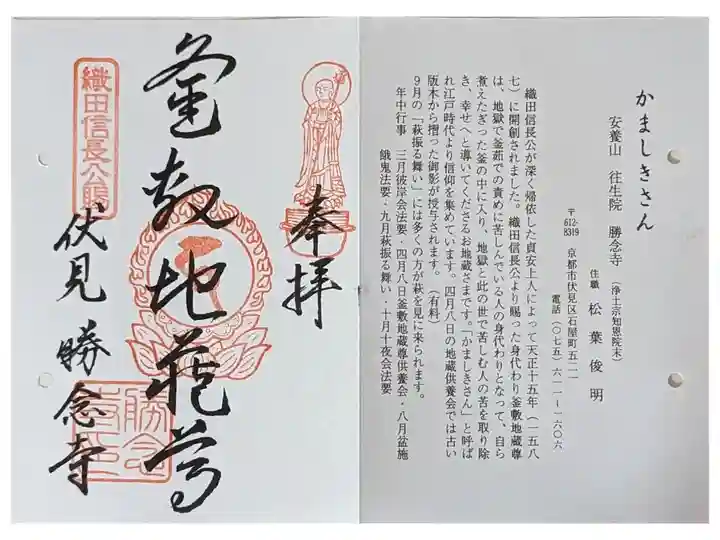 かましきさん
安養山 往生院 勝念寺 (浄土宗知恩院末)
住職 松葉俊明
〒612-8319 京都市伏見区石屋町五二一
電話(〇七五)六一一-一六〇六
織田信長公が深く帰依した貞安上人によって天正十五年(一五八
七)に開創されました。織田信長公より賜った身代わり釜敷地蔵尊
は、地獄で釜茹での責めに苦しんでいる人の身代わりとなって、自ら
煮えたぎった釜の中に入り、地獄と此の世で苦しむ人の苦を取り除
き、幸せへと導いてくださるお地蔵さまです。「かましきさん」と呼ば
れ江戸時代より信仰を集めています。四月八日の地蔵供養会では古い
版木から摺った御影が授与されます。(有料)
9月の「萩振る舞い」には多くの方が萩を見に来られます。
年中行事 三月彼岸会法要・四月八日釜敷地蔵尊供養会・八月盆施
餓鬼法要・九月萩振る舞い 十月十夜会法要
奉拝
釜敷地蔵尊
織田信長公賜
伏見 勝念寺
勝念
寺印